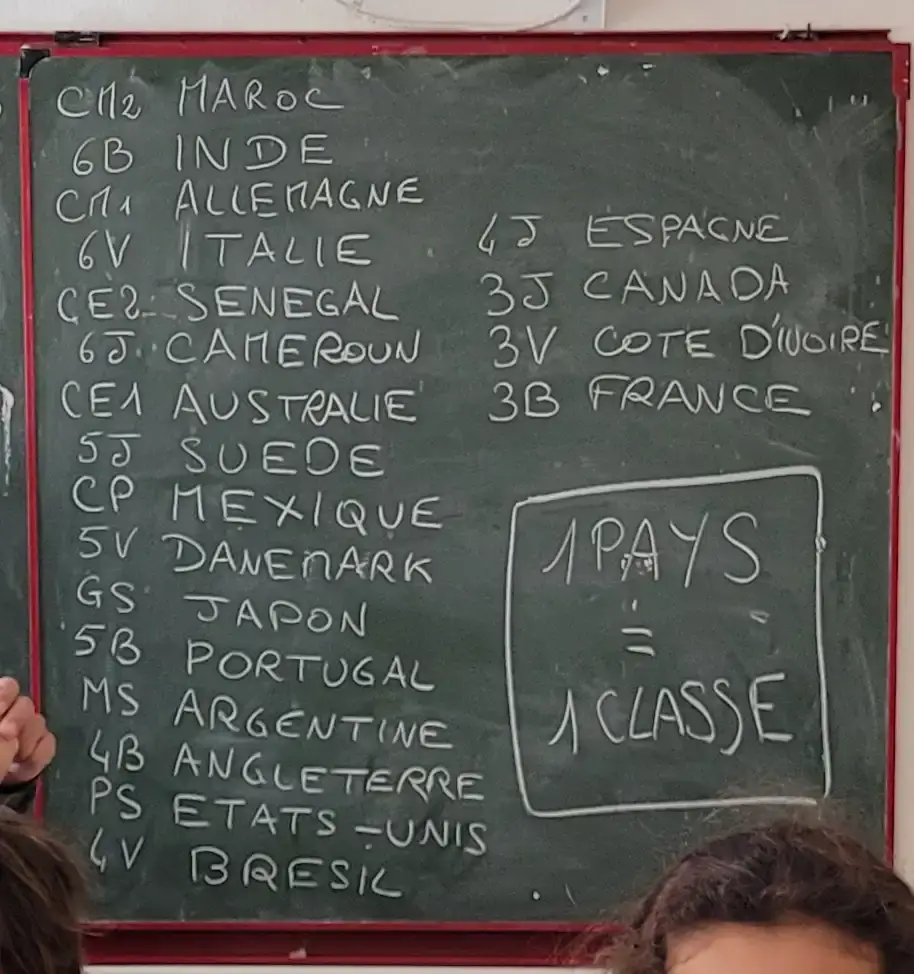 CM2 MAROC
6B INDE
CM1 ALLEMAGNE
6V ITALIE
CE2 SENEGAL
6J CAMEROUN
CE1 AUSTRALIE
5J SUEDE
CP MEXIQUE
5V DANEMARK
GS JAPON
5B PORTUGAL
MS ARGENTINE
4B ANGLETERRE
PS ETATS-UNIS
4V BRESIL
4J ESPAGNE
3J CANADA
3V COTE D'IVOIRE
3B FRANCE
1 PAYS
=
1 CLASSE